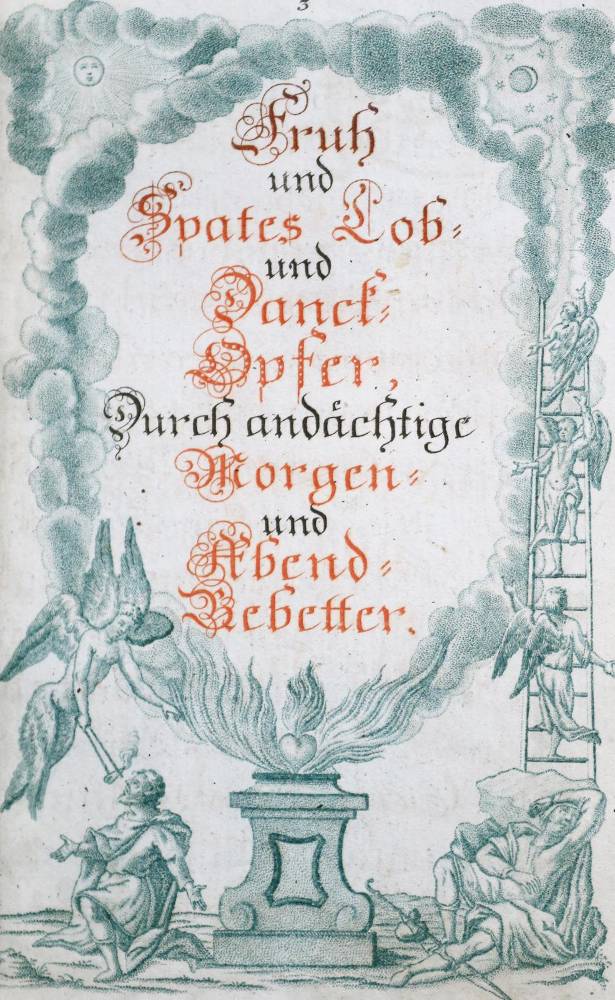 3
Fruh
und
Spates Lob=
und
Danck=
Opfer,
Durch andaͤchtige
Morgen=
und
Abend=
Gebetter.